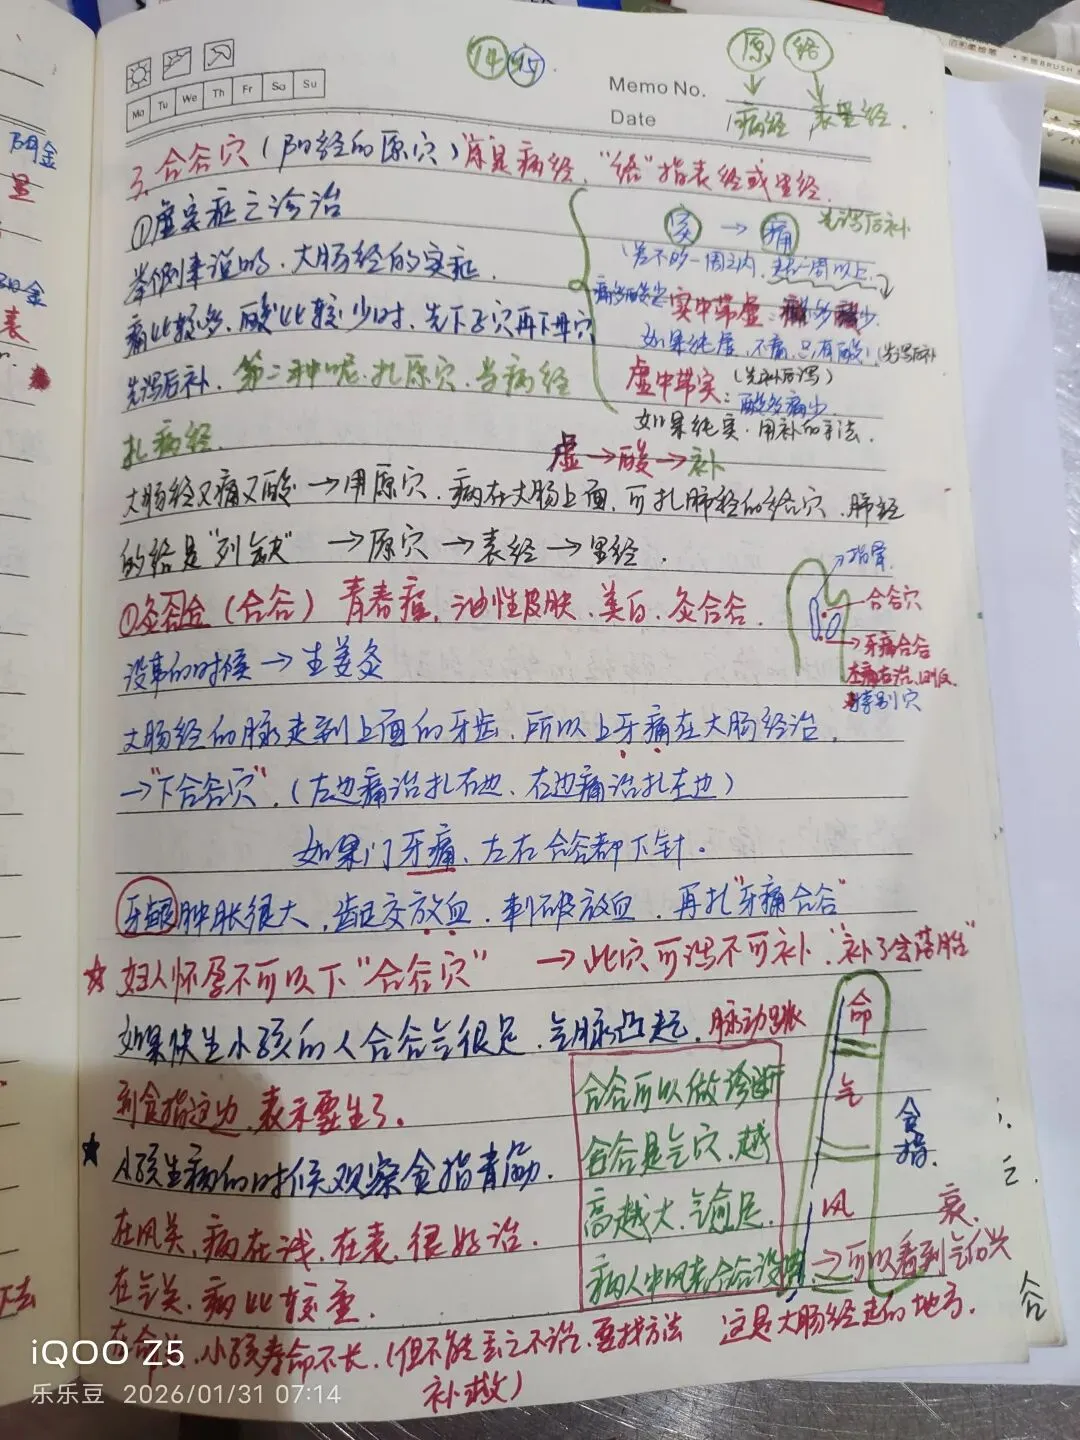 14 15
原 络
Memo No.
Mo Tu We Th Fr Sa Su
Date
病经 表里经.
3. 合谷穴(阳经的原穴)原是病经."络"指表经或里经.
①虚实症之诊治
实→痛 先泻后补
举例来说明、大肠经的实症.
痛比较多、酸比较少时、先下子穴再下母穴
实中带虚:
如果纯虚,不痛,只有酸!(先泻后补
先泻后补. 第二种呢、扎原穴、当病经
虚中带实:(先补后泻)
酸多痛少.
扎病经.
如果纯实.用补的手法.
虚→酸→补
大肠经又痛又酸→用原穴.病在大肠上面,可扎肺经的络穴、肺经
的络是"列缺"→原穴→表经→里经.
指骨
合谷穴
牙痛合合
①灸合谷(合谷)青春痘,油性皮肤、美白、灸合谷.
没事的时候→生姜灸
大肠经的脉走到上面的牙齿,所以上牙痛在大肠经治.
→"下合谷穴".(左边痛治扎右边、右边痛治扎左边)
如果门牙痛、左右合谷都下针.
牙龈肿胀很大,龈交放血.刺破放血,再扎"牙痛合谷"
☆妇人怀孕不可以下"合谷穴"→此穴可泻不可补."补了会落胎"
如果快生小孩的人合谷气很足,气脉凸起,脉动跳
到食指这边,表示要生了.
合谷可以做诊断
合谷是气穴、越
高越大、气愈足.
命
气
风
食指.
★小孩生病的时候观察食指青筋.
在风关,病在浅,在表,很好治.
在气关,病比较重.
→可以看到气的兴衰.
在命关,小孩寿命不长.(但不能丢之不治.要找方法
补救)
这是大肠经走的地方.
iQOO Z5
乐乐豆 2026/01/31 07:14